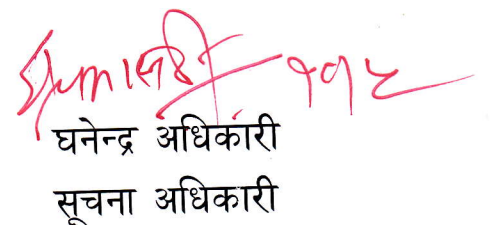 घनेन्द्र अधिकारी
सूचना अधिकारी